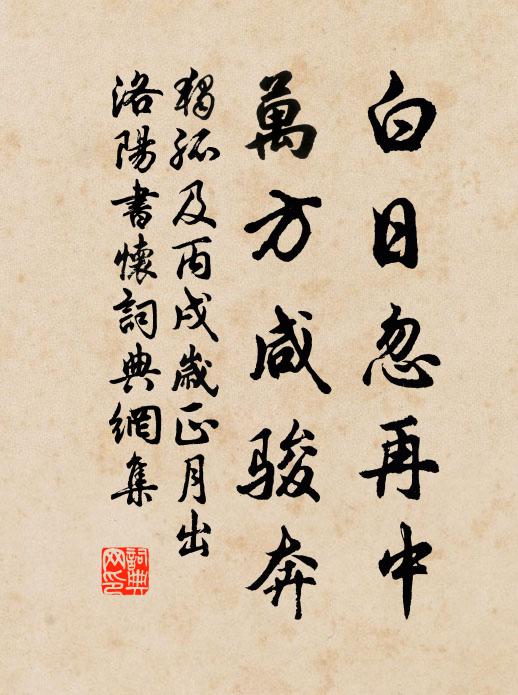 白日忽再中
萬方咸骏奔
獨孤及丙戌歲正月出
洛陽書懷詞典網集
詞典
网印